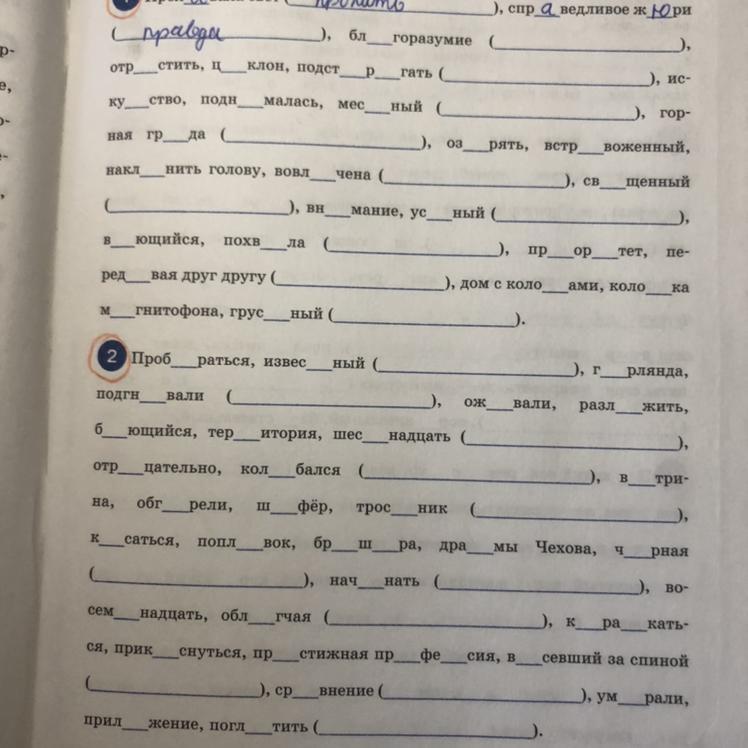 пропить ), спр а ведливое ж ю ри
( правда ), бл__горазумие (____________),
отр__стить, ц__клон, подст__р__гать (____________), ис-
ку__ство, подн__малась, мес__ный (____________), гор-
ная гр__да (____________), оз__рять, встр__воженный,
накл__нить голову, вовл__чена (____________), св__щенный
(____________), вн__мание, ус__ный (____________),
в__ющийся, похв__ла (____________), пр__ор__тет, пе-
ред__вая друг другу (____________), дом с коло__ами, коло__ка
м__гнитофона, грус__ный (____________).
2 Проб__раться, извес__ный (____________), г__рлянда,
подгн__вали (____________), ож__вали, разл__жить,
б__ющийся, тер__итория, шес__надцать (____________),
отр__цательно, кол__бался (____________), в__три-
на, обг__рели, ш__фёр, трос__ник (____________),
к__саться, попл__вок, бр__ш__ра, дра__мы Чехова, ч__рная
(____________), нач__нать (____________), во-
сем__надцать, обл__гчая (____________), к__ра__кать-
ся, прик__снуться, пр__стижная пр__фе__сия, в__севший за спиной
(____________), ср__внение (____________), ум__рали,
прил__жение, погл__тить (____________).
р-
е,
о-
е-
,